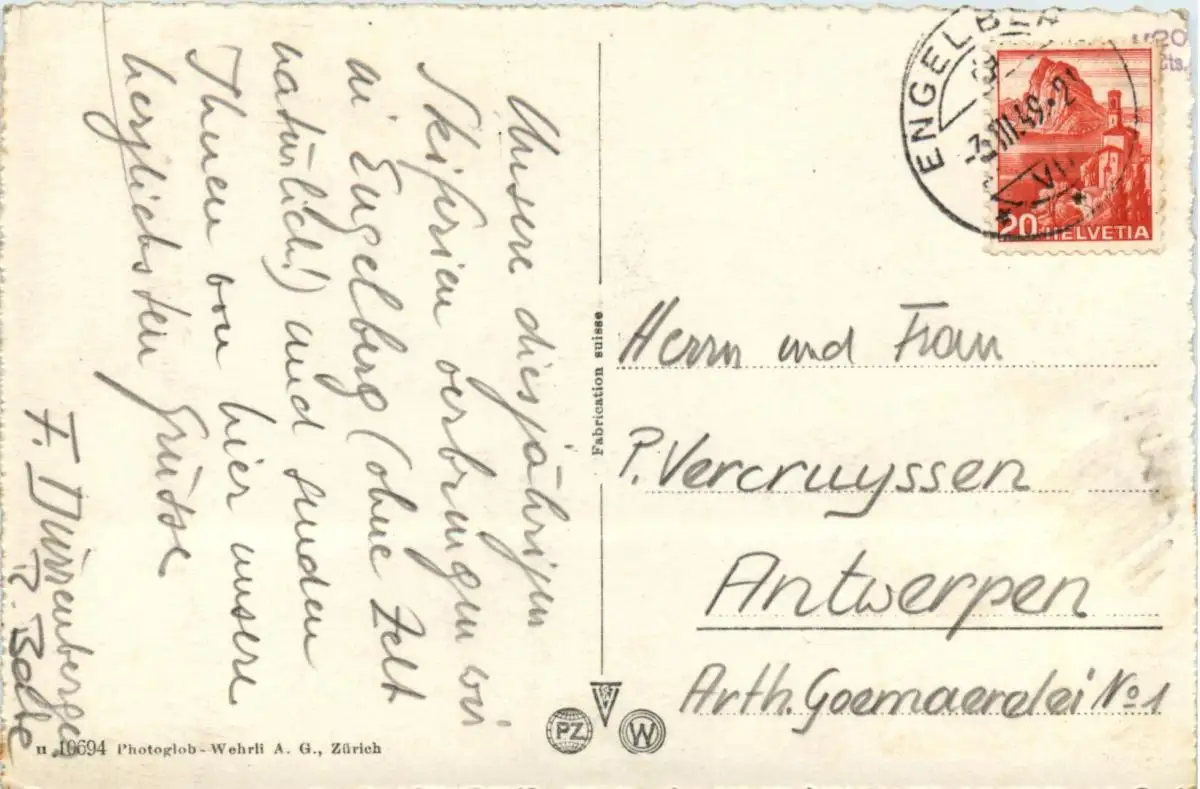 Unsere diesjährigen
Skiferien verbringen wir
in Engelberg (ohne Zelt
natürlich!) und senden
Ihnen von hier unsere
herzlichsten Grüsse
F. Dürrenberger
R. Bolte
Fabrication suisse
ENGELBER
-3.III.49.21
VII
20 HELVETIA
Herrn und Frau
P. Vercruyssen
Antwerpen
Arth. Goemaerelei No 1
PZ
W
10694 Photoglob-Wehrli A. G., Zürich